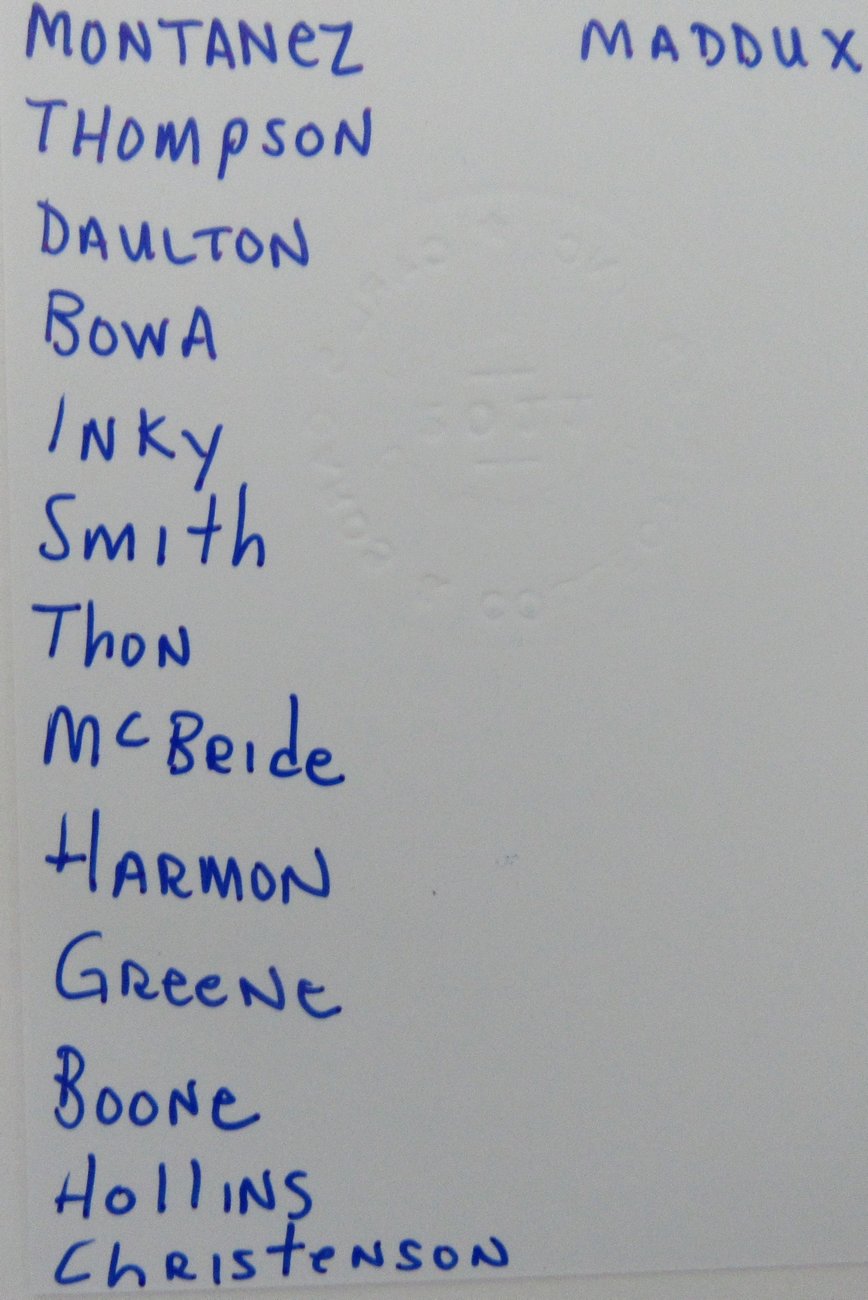 MONTANEZ MADDUX
THOMPSON
DAULTON
BOWA
INKY
Smith
ThON
McBRide
HARMON
GReeNe
BOONe
HollINS
ChRIsteNSON